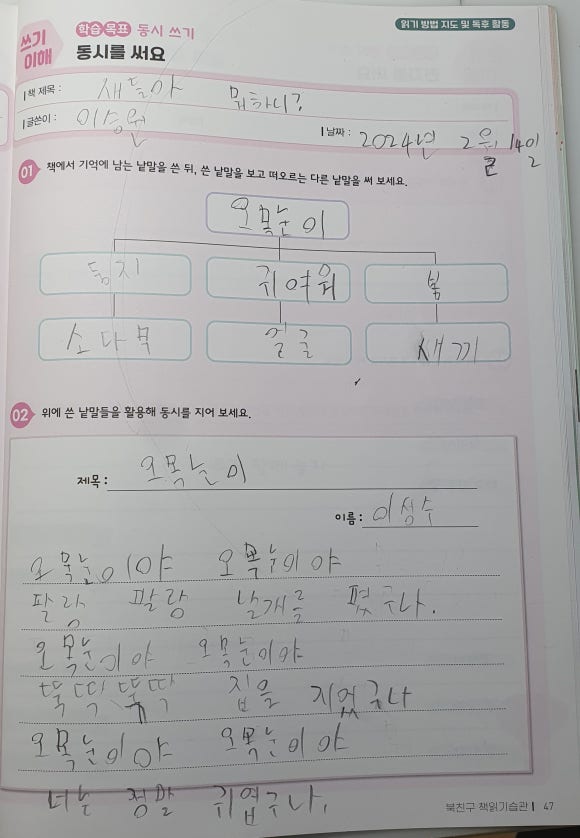 읽기 방법 지도 및 독후 활동
쓰기 이해
학습 목표 동시 쓰기
동시를 써요
책 제목 : 새들아 뭐하니?
글쓴이 : 이승원
날짜 : 2024년 2월 14일
01 책에서 기억에 남는 낱말을 쓴 뒤, 쓴 낱말을 보고 떠오르는 다른 낱말을 써 보세요.
오목눈이
둥지 귀여워 봄
소나무 얼굴 새끼
02 위에 쓴 낱말들을 활용해 동시를 지어 보세요.
제목 : 오목눈이
이름 : 이성수
오목눈이야 오목눈이야
팔랑 팔랑 날개를 폈구나.
오목눈이야 오목눈이야
뚝딱 뚝딱 집을 지었구나
오목눈이야 오목눈이야
너는 정말 귀엽구나.
북친구 책읽기습관 47